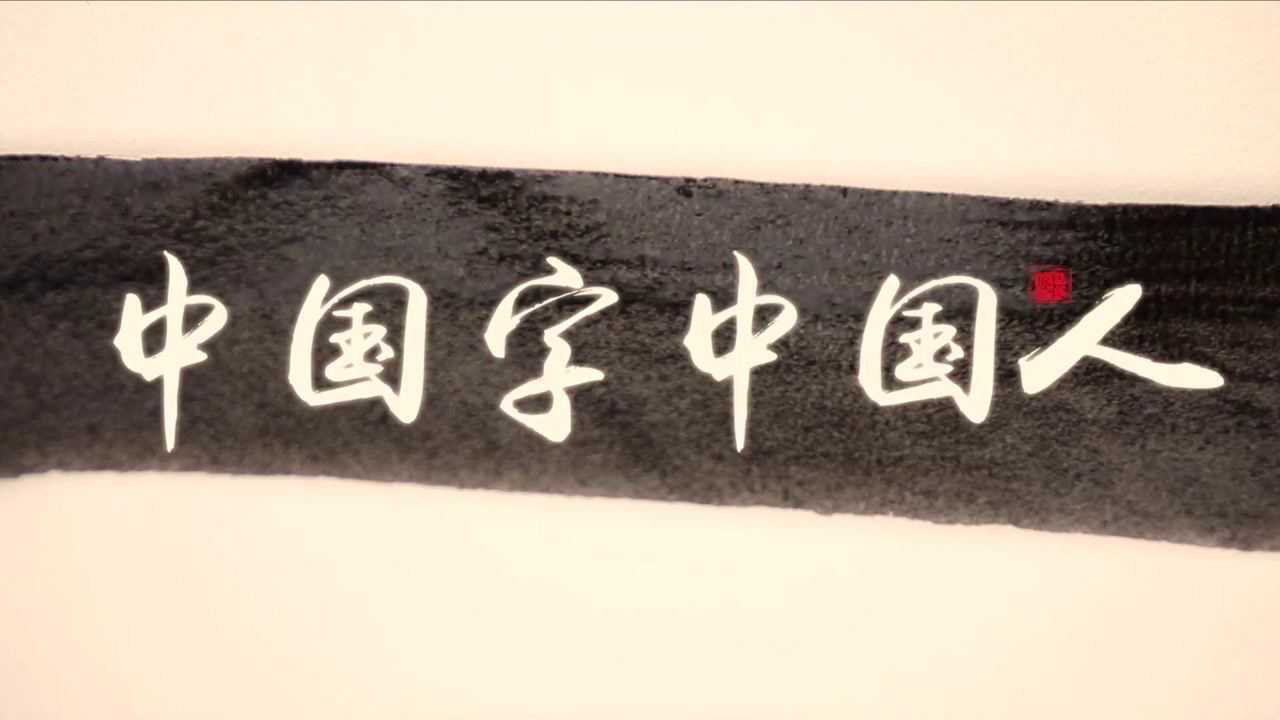 中国字中国人